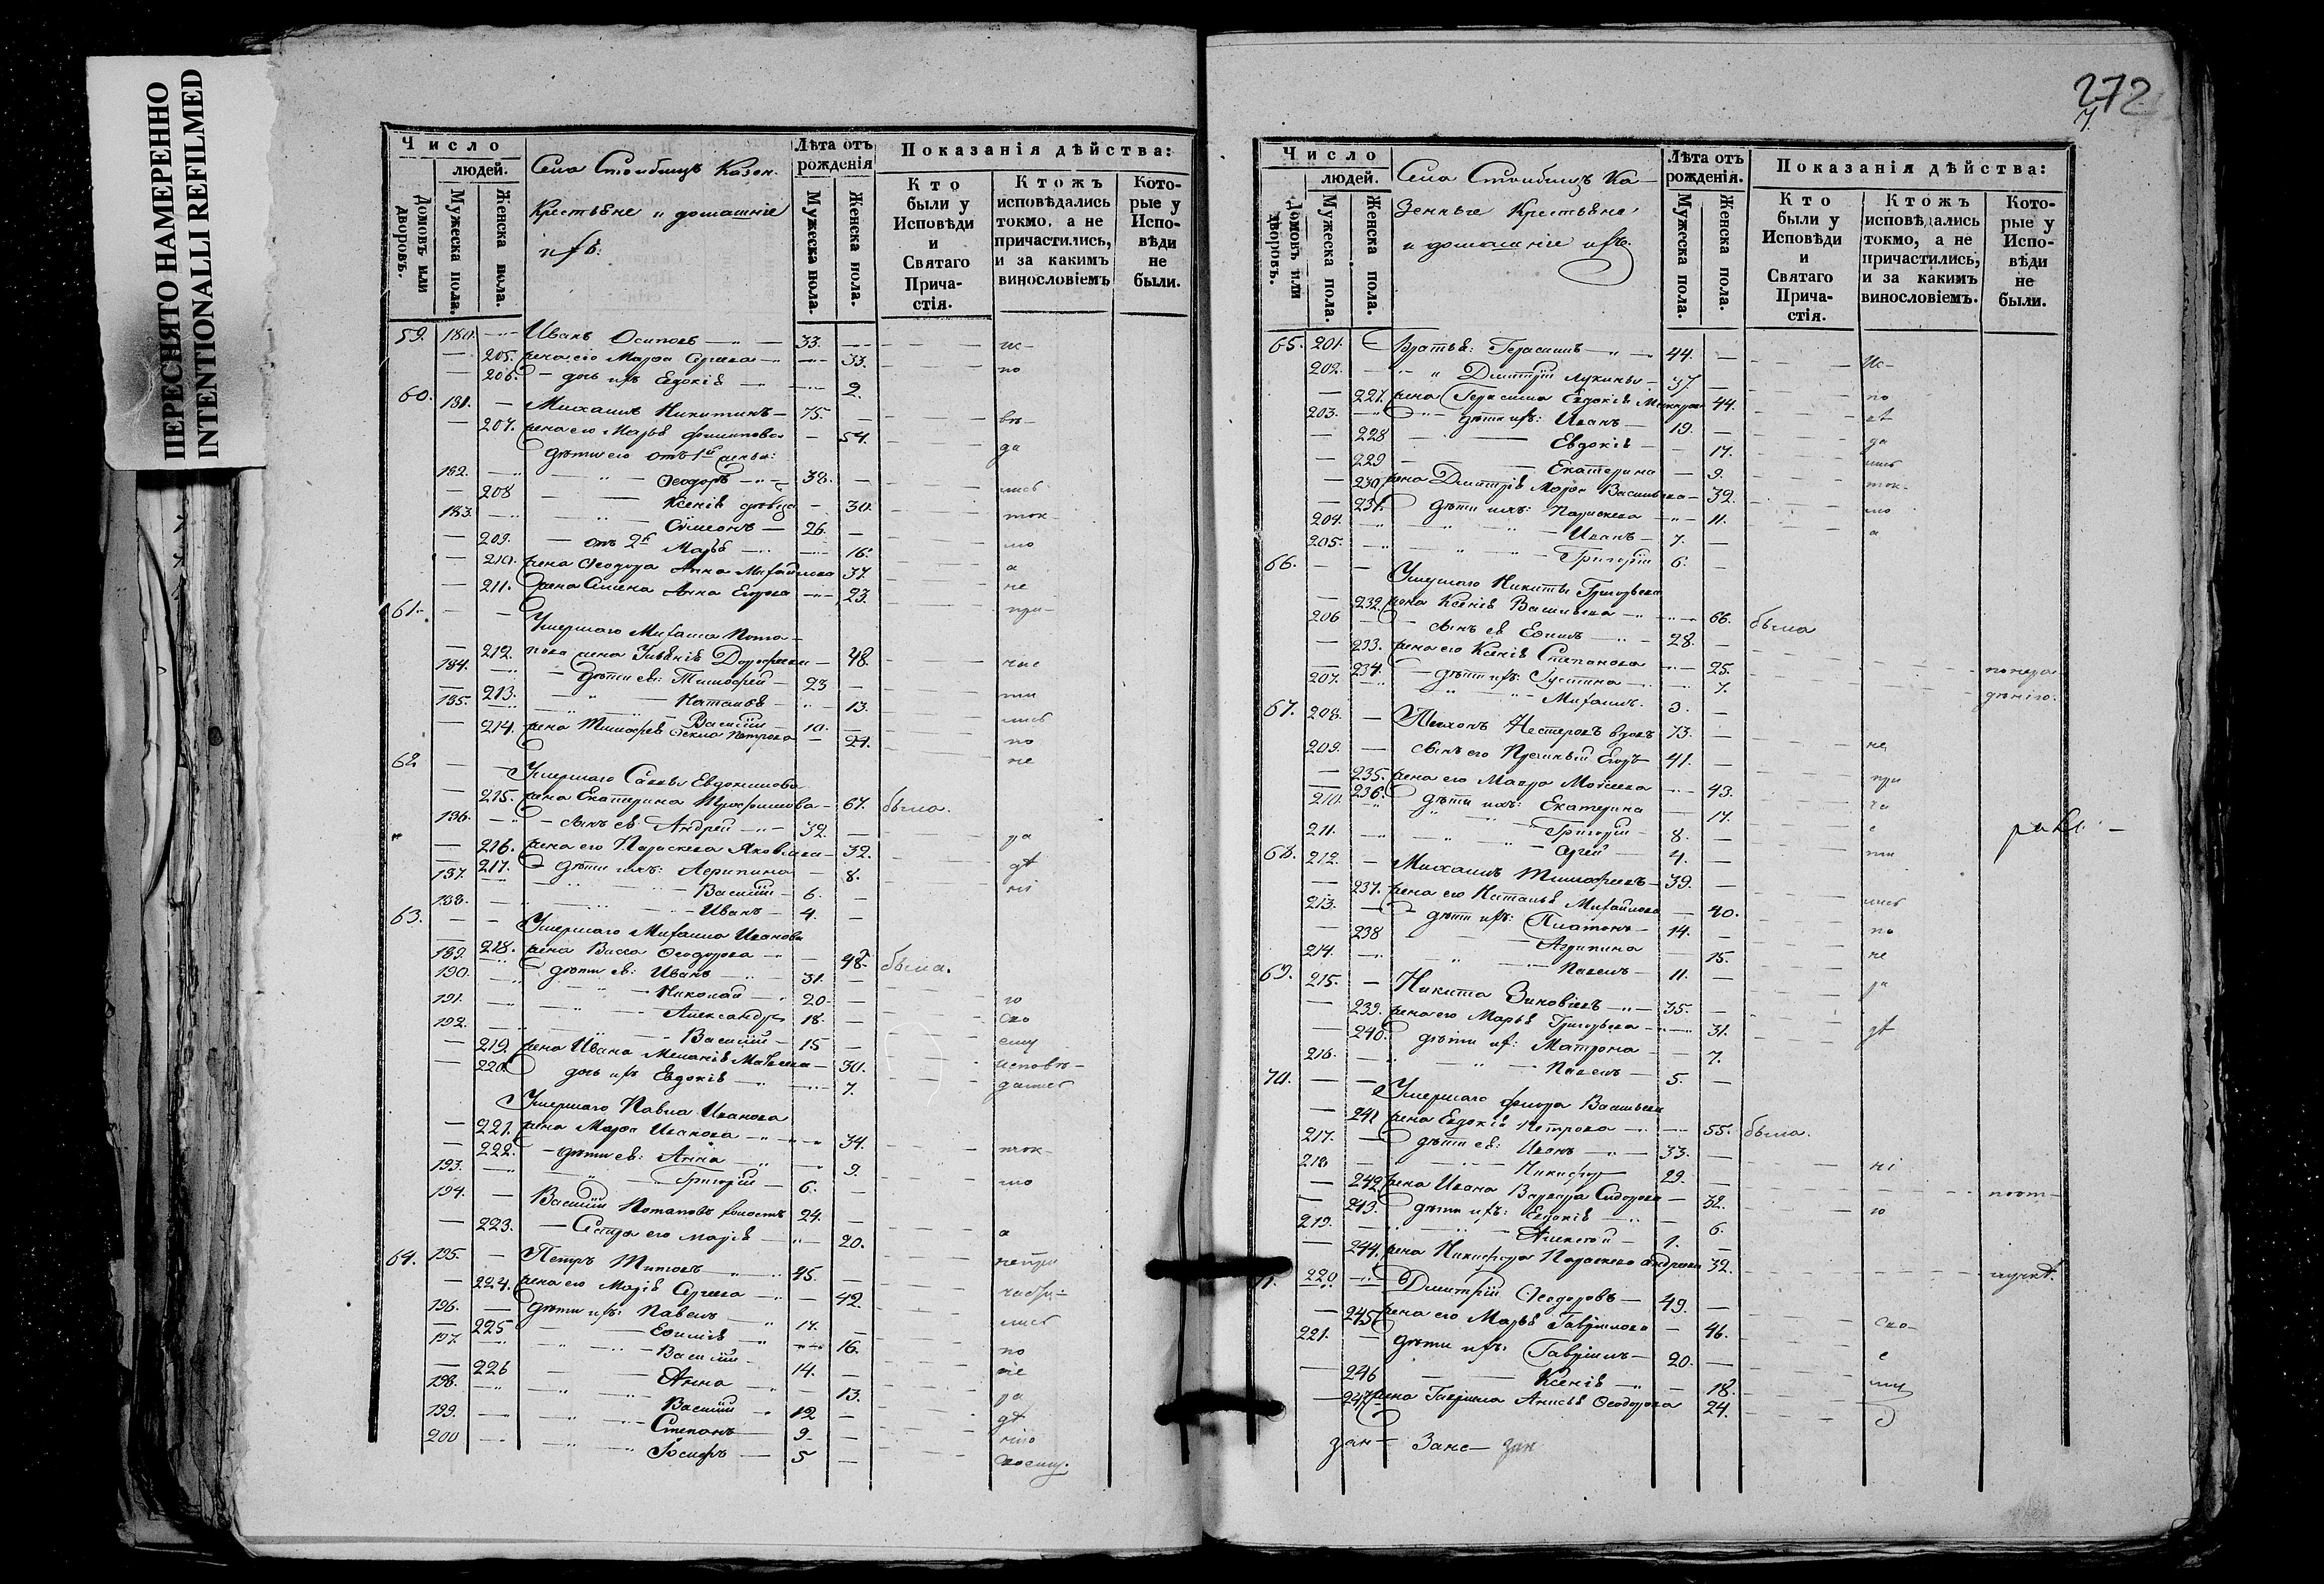 ПЕРЕСНЯТО НАМЕРЕННО
INTENTIONALLI REFILMED
Число
людей.
Домовъ или дворовъ.
Мужеска пола.
Женска пола.
Села Столбищъ Казен.
Крестьяне и домашніе
ихъ:
Лѣта отъ рожденія
Мужеска пола.
Женска пола.
Показанія дѣйства:
Кто были у Исповѣди и Святаго Прича-стія.
Ктожъ исповѣдались токмо, а не причастились, и за какимъ винословіемъ
Кото-рые у Испо-вѣди не были.
59. 180. Иванъ Осиповъ 33. ис-
205. жена его Марѳа Сергеева 33. по
206. дочь ихъ Евдокія 2.
60. 181. Михаилъ Никитинъ 75. вѣ-
207. жена его Марья Филиппова 54. да
дѣти его отъ 1й жены:
182. Ѳеодоръ 38. лись
208 Ксенія дѣвица 30. ток
183. Сѵмеонъ 26. мо
209. отъ 2й Марья 16. а
210. жена Ѳеодора Анна Михайлова 37. не
211. жена Семена Анна Егорова 23. при-
61. Умершаго Михаила Пота-
212. пова жена 48. час
184. дѣти ея: Тимофей 23
213. Наталья 13. ти
185. Василій 10. лись
214. жена Тимофея Ѳекла Петрова 21. по
62 Умершаго Саввы Евдокимова не
215. жена Екатерина 67. была.
186. сынъ ея Андрей 32. ра
216. жена его Параскева Яковлева 32. дѣ
217. дѣти ихъ: Агрипина 8. ні
187. Василій 6.
188. Иванъ 4.
63. Умершаго Михаила Иванова
218. жена Васса Ѳеодорова 48. была.
189. дѣти ея: Иванъ 31.
190. Николай 20. ю
191. Александръ 18. сво
192. Василій 15 ему
219. жена Ивана Меланія 30. исповѣ-
220. дочь ихъ Евдокія 7. дались
Умершаго Павла Иванова
221. жена Марѳа Иванова 34. ток-
222. дѣти ея: Анна 9.
193. Григорій 6. мо
194. Василій Потаповъ холостъ 24.
223. Сестра его Марія 20. а
64. 195. Петръ Титовъ 45. непри
224. жена его Марія Сергеева 42.
196. дѣти ихъ: Павелъ 17. лись
225 Еѳимія 16. по
197. Василій 14. не
226 Анна 13. ра
198. Василій 12 дѣ
199. Степанъ 9. нію
200 Іосифъ 5 своему.
272
Число
людей.
Домовъ или дворовъ.
Мужеска пола.
Женска пола.
Села Столбищъ Ка-
зенные Крестьяне
и домашніе ихъ.
Лѣта отъ рожденія.
Мужеска пола.
Женска пола.
Показанія дѣйства:
Кто были у Исповѣди и Святаго Прича-стія.
Ктожъ исповѣдались токмо, а не причастились, и за какимъ винословіемъ.
Кото-рые у Испо-вѣди не были.
65. 201. Братья: Герасимъ 44. Ис-
202. Дмитрій Лукины 37. по
227. жена Герасима Евдокія 44. вѣ
203. дѣти ихъ: Иванъ 19. да
228 Евдокія 17. лись
229 Екатерина 9. ток-
230. жена Дмитрія Марѳа Васильева 32. мо
231. дѣти ихъ: Параскева 11. а
204. Иванъ 7.
205. Григорій 6.
66. Умершаго Никиты Григорьева
232. жена Ксенія Васильева 66. была
206 сынъ ея Еѳимъ 28.
233. жена его Ксенія Степанова 25. понера
234. дѣти ихъ: Іустина 7. дѣнію.
207. Михаилъ. 3.
67. 208. Тихонъ Нестеровъ вдовъ 73. не
209. сынъ его Прежній Егоръ 41. при
235. жена его Мавра Моѵсеева 43. ча
236. дѣти ихъ: Екатерина 17. с
210. Григорій 8.
211. Сергей 4. ти
68. 212. Михаилъ Тимофеевъ 39.
237. жена его Наталья Михайлова 40. лись
213. дѣти ихъ: Платонъ 14. по
238 Агрипина 15. не
214. Павелъ 11.
69. 215. Никита Зиновіевъ 35. ра
239. жена его Марья Григорьева 31. дѣ
240. дѣти ихъ: Матрона 7.
216. Павелъ 5.
70. Умершаго Флора Васильева
241 жена Евдокія Петрова 55. была.
217. дѣти ея: Иванъ 33. ні
218 Никифоръ 29. поот-
242 жена Ивана Варвара Сидорова 32. ю
243. дѣти ихъ: Евдокія 6.
219. Алексѣй 1.
244. жена Никифора Параскева 32. лучкѣ.
71. 220 Дмитрій Ѳеодоровъ 49.
245 жена его Марья Гаврилова 46. Сво-
221. дѣти ихъ: Гавріилъ 20. е
246 Ксенія 18. му
247 жена Гаврила Анисья Ѳеодорова 24.